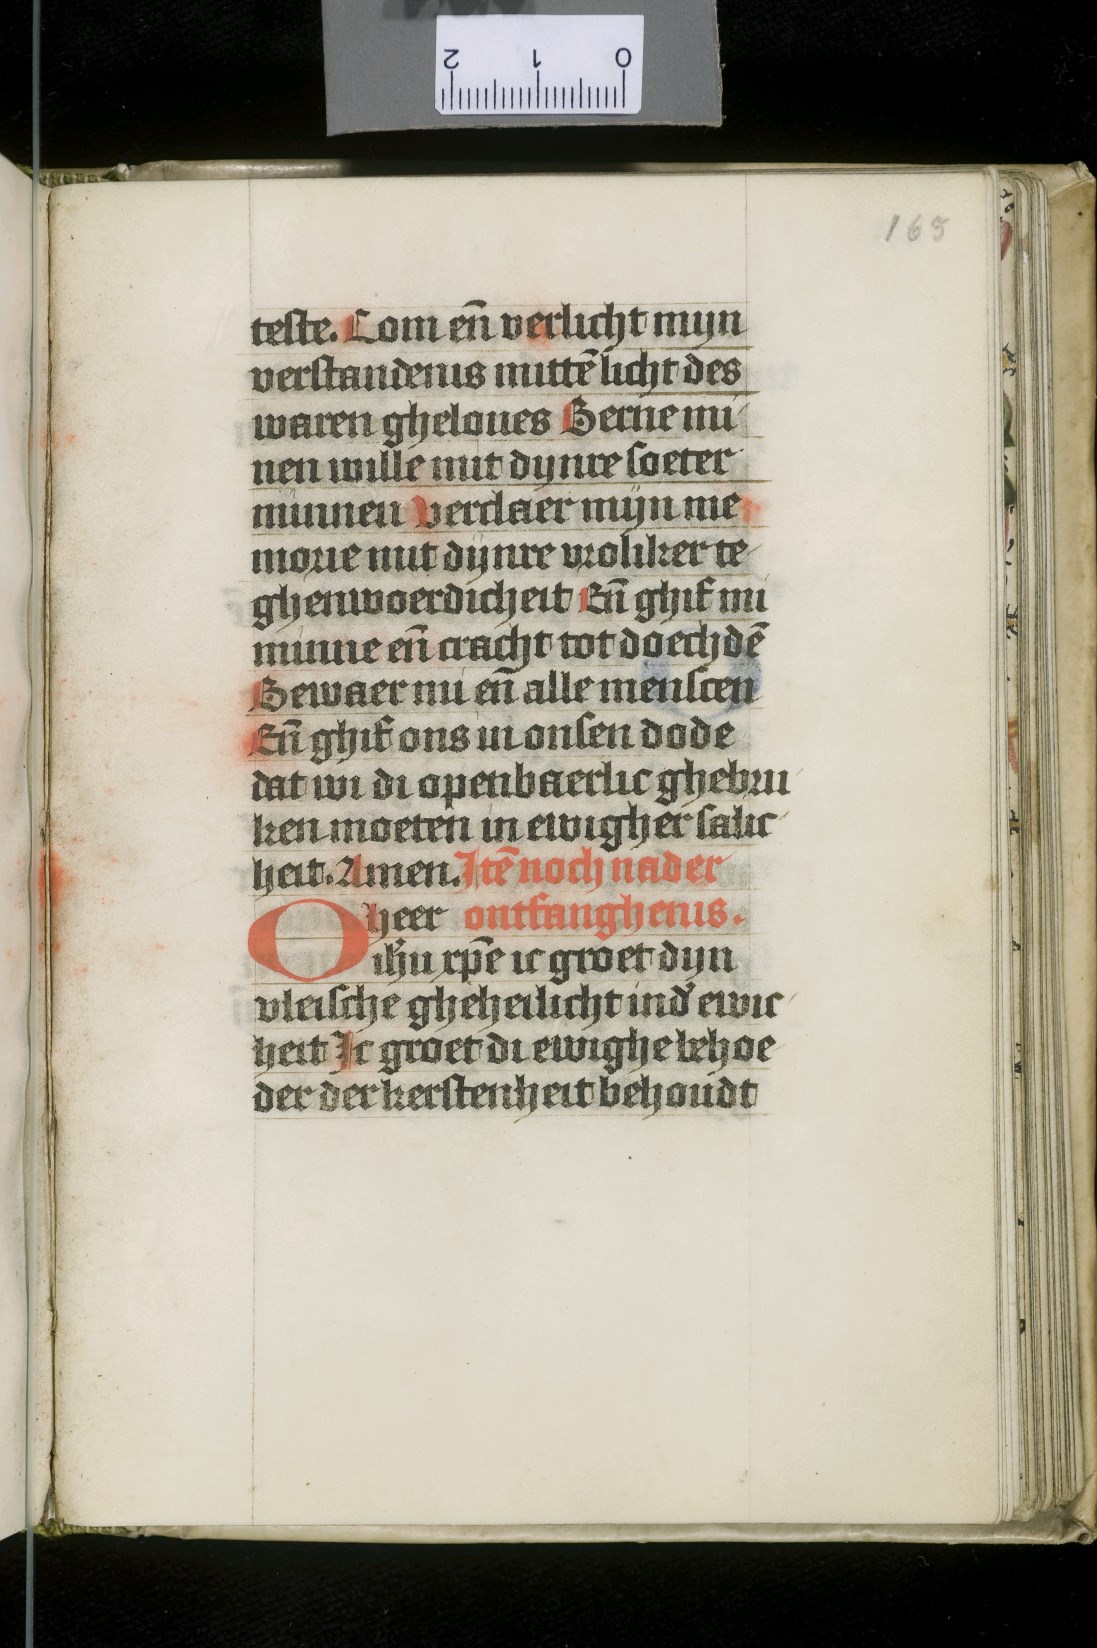 165
teste. Com en̄ verlicht mijn
verstandenis mittē licht des
waren gheloues Berne mi
nen wille mit dynre soeter
minnen Verclaer mijn me
morie mit dijnre vroliker te
ghenwoerdicheit En̄ ghif mi
minne en̄ cracht tot doechdē
Bewaer mi en̄ alle menscen
En̄ ghif ons in onsen dode
dat wi di openbaerlic ghebru
ken moeten in ewigher salic
heit. Amen. Itē noch na der
O heer ontfanghenis.
ih̄u xp̄e ic groet dijn
vleische gheheilicht in d' ewic
heit Ic groet di ewighe behoe
der der kerstenheit behoudt
2 1 0